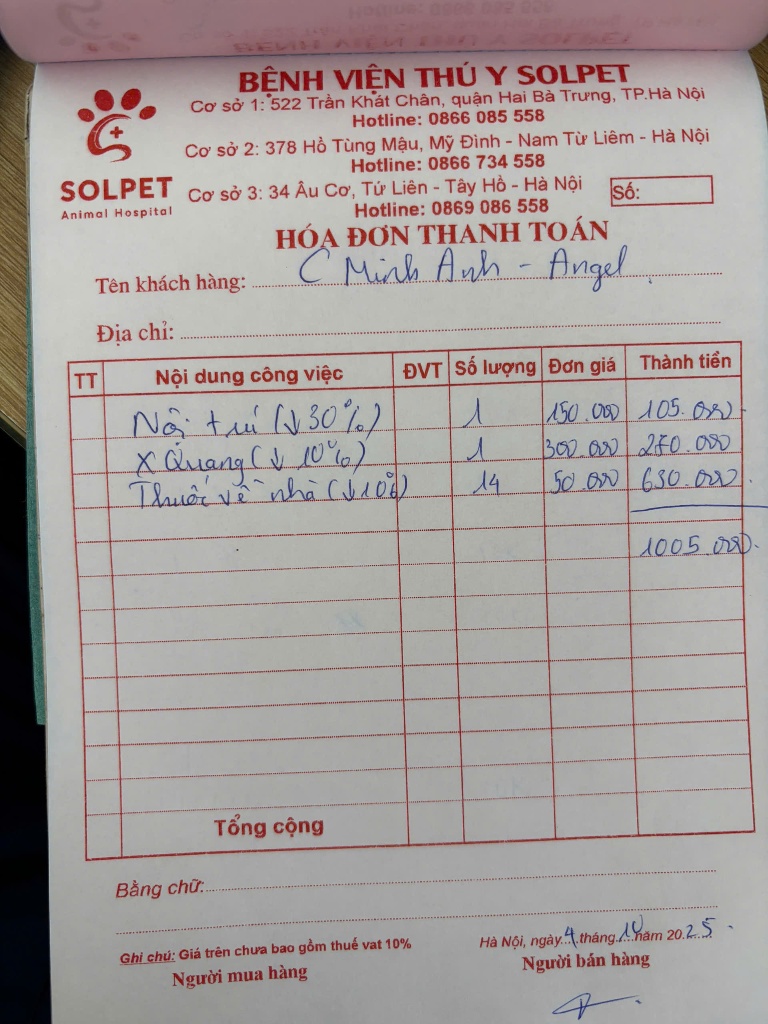 BỆNH VIỆN THÚ Y SOLPET
Cơ sở 1: 522 Trần Khát Chân, quận Hai Bà Trưng, TP.Hà Nội
Hotline: 0866 085 558
Cơ sở 2: 378 Hồ Tùng Mậu, Mỹ Đình - Nam Từ Liêm - Hà Nội
Hotline: 0866 734 558
SOLPET
Animal Hospital
Cơ sở 3: 34 Âu Cơ, Tứ Liên - Tây Hồ - Hà Nội
Số:
Hotline: 0869 086 558
HÓA ĐƠN THANH TOÁN
Tên khách hàng: C Minh Anh - Angel
Địa chỉ:
TT Nội dung công việc ĐVT Số lượng Đơn giá Thành tiền
Nội trú (↓30%) 1 150.000 105.000
X Quang (↓ 10%) 1 300.000 270.000
Thuốc về nhà (↓10%) 14 50.000 630.000
1005.000
Tổng cộng
Bằng chữ:
Ghi chú: Giá trên chưa bao gồm thuế vat 10%
Hà Nội, ngày 4 tháng 10 năm 2025
Người mua hàng
Người bán hàng